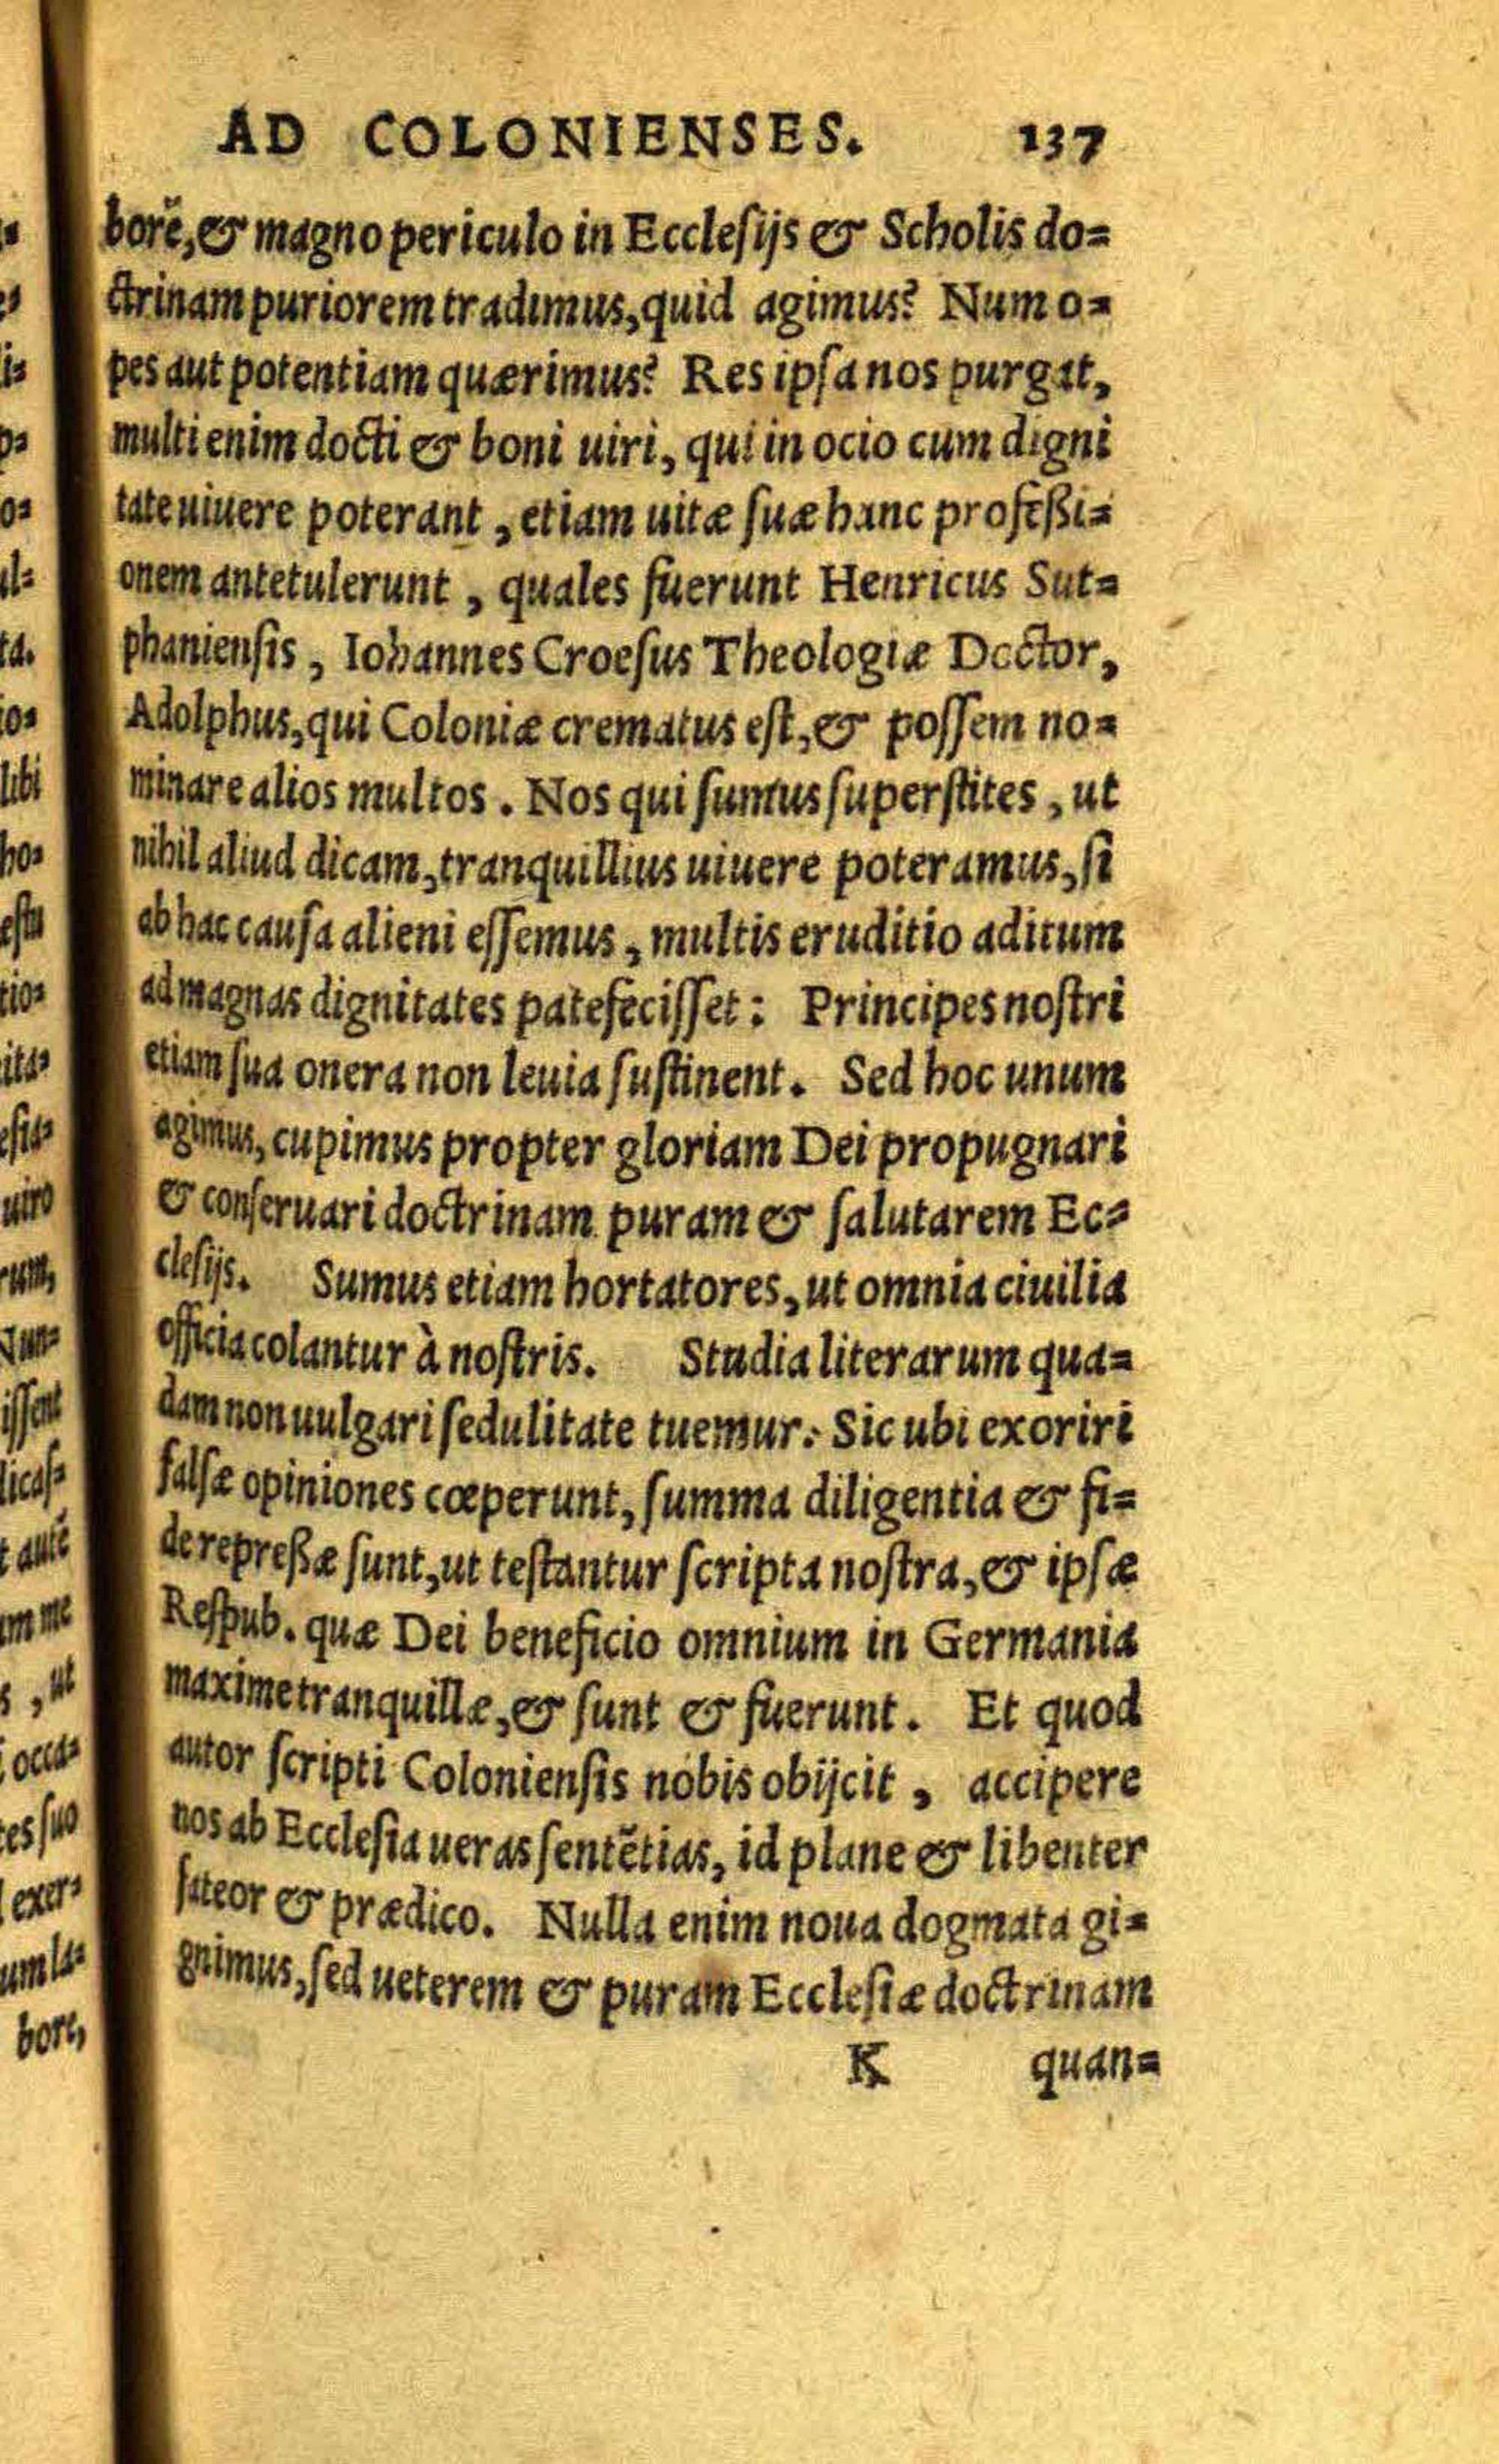 AD COLONIENSES. 137
borẽ, & magno periculo in Eccleſijs & Scholis do=
ctrinam puriorem tradimus, quid agimus? Num o=
pes aut potentiam quærimus? Res ipſa nos purgat,
multi enim docti & boni uiri, qui in ocio cum digni
tate uiuere poterant, etiam uitæ ſuæ hanc profeßi=
onem antetulerunt, quales fuerunt Henricus Sut=
phanienſis, Iohannes Croeſus Theologiæ Doctor,
Adolphus, qui Coloniæ crematus eſt, & poſſem no=
minare alios multos. Nos qui ſumus ſuperſtites, ut
nihil aliud dicam, tranquillius uiuere poteramus, ſi
ab hac cauſa alieni eſſemus, multis eruditio aditum
ad magnas dignitates patefeciſſet: Principes noſtri
etiam ſua onera non leuia ſuſtinent. Sed hoc unum
agimus, cupimus propter gloriam Dei propugnari
& conſeruari doctrinam puram & ſalutarem Ec=
cleſijs. Sumus etiam hortatores, ut omnia ciuilia
officia colantur à noſtris. Studia literarum qua=
dam non uulgari ſedulitate tuemur: Sic ubi exoriri
falſæ opiniones cœperunt, ſumma diligentia & fi=
de repreßæ ſunt, ut teſtantur ſcripta noſtra, & ipſæ
Reſpub. quæ Dei beneficio omnium in Germania
maxime tranquillæ, & ſunt & fuerunt. Et quod
autor ſcripti Colonienſis nobis obijcit, accipere
nos ab Eccleſia ueras ſentẽtias, id plane & libenter
fateor & prædico. Nulla enim noua dogmata gi=
gnimus, ſed ueterem & puram Eccleſiæ doctrinam
K quan=